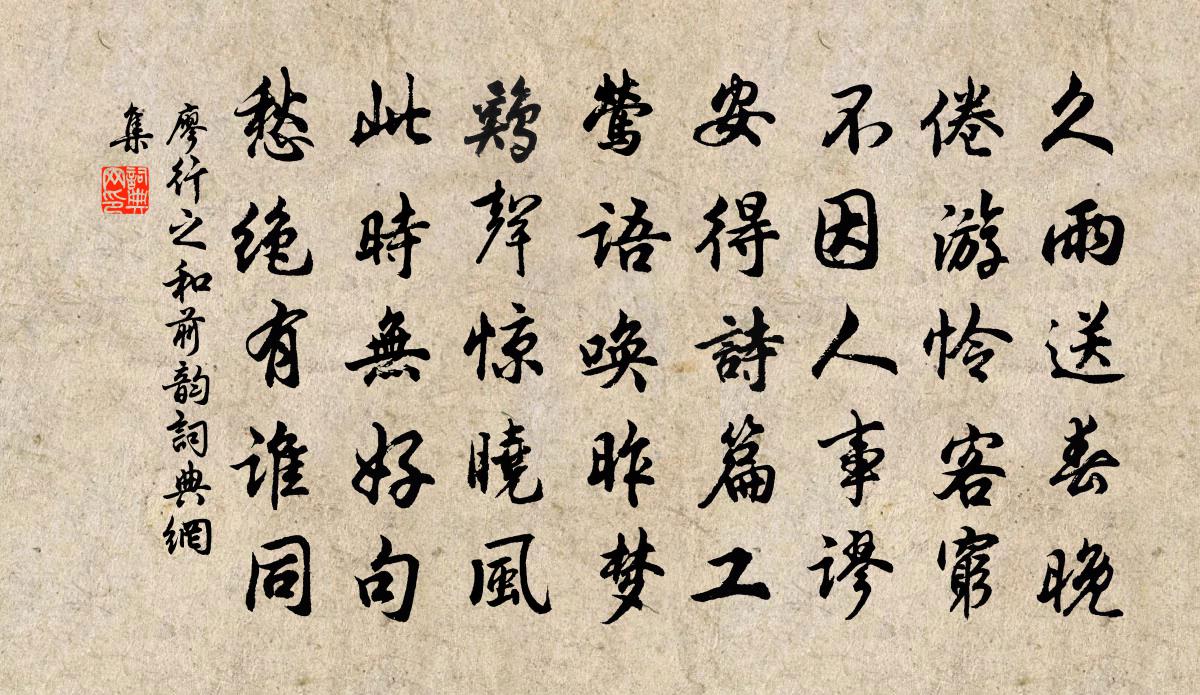 久雨送春晚
倦游怜客窮
不因人事謬
安得詩篇工
鶯語唤昨梦
鷄聲惊曉風
此時無好句
愁絶有誰同
廖行之和前韵詞典網
集
詞典网印